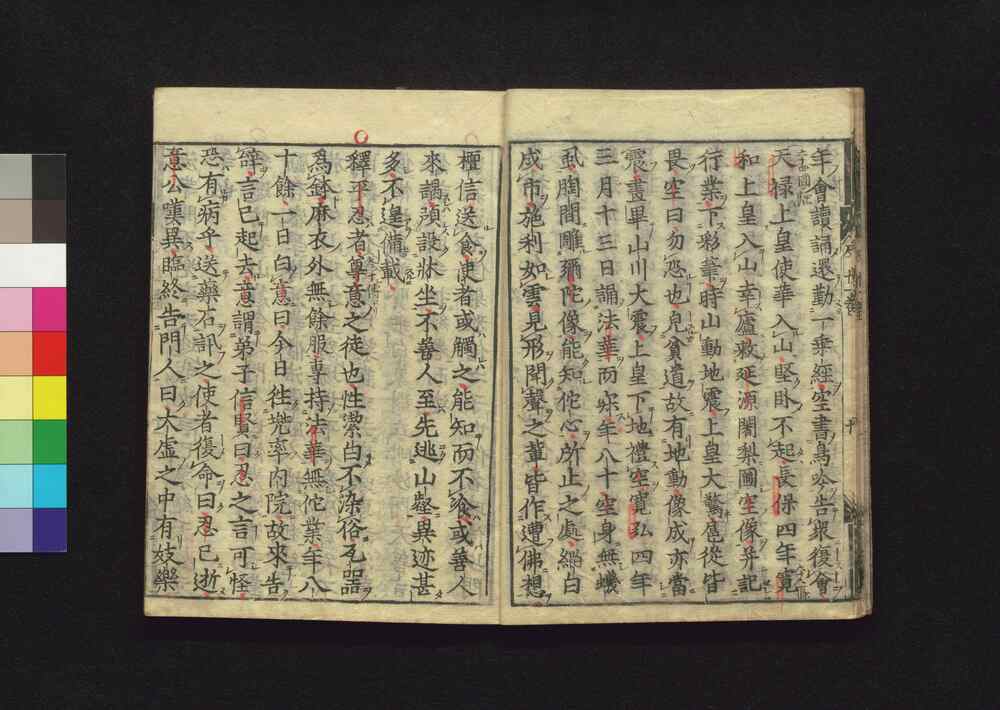 年會讀誦還勤一乘經空書寫吟告衆復會
天祿上皇使華入山堅臥不起長保四年寬
和上皇入山幸廬敕延源闍梨圖空像并記
行業下彩筆時山動地震上皇大驚扈從皆
畏空曰勿恐也皃貧道故有地動像成亦當
震畫畢山川大震上皇下地禮空寬弘四年
三月十三日誦法華而寂年八十空身無蟣
虱胸間雕彌陀像能知佗心所止之處緇白
成市施利如雲見形聞聲之輩皆作遭佛想
檀信送食患者或觸之能知而不飡或善人
來謁預設牀坐不善人至先逃山壑異迹甚
多不遑備載
釋平忍者尊意之徒也性潔白不染俗瓦器
爲鉢麻衣外無餘服專持法華無佗業年八
十餘一日白意曰今日徃兜率内院故來告
辭言已起去意謂弟子信賢曰忍之言可怪
恐有病乎送藥石訊之使者復命曰忍已逝
意公嘆異臨終告門人曰大虛之中有妓樂